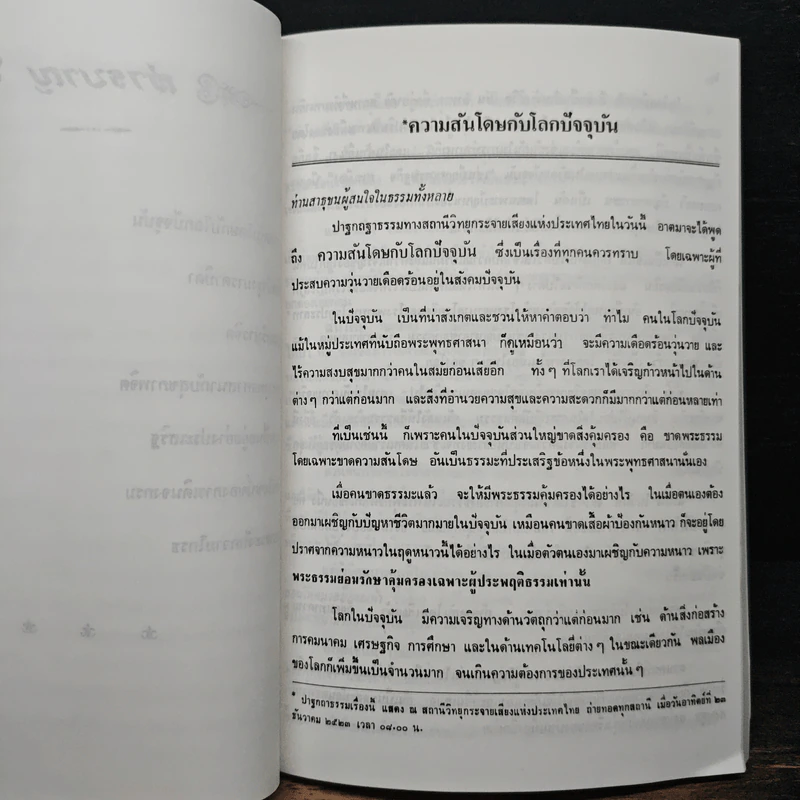 *ความสันโดษกับโลกปัจจุบัน
ท่านสาธุชนผู้สนใจในธรรมทั้งหลาย
ปาฐกถฐาธรรมทางสถานีวิทยุกระจายเสียงแห่งประเทศไทยในวันนี้ อาตมาจะได้พูด
ถึง ความสันโดษกับโลกปัจจุบัน ซึ่งเป็นเรื่องที่ทุกคนควรทราบ โดยเฉพาะผู้ที่
ประสบความวุ่นวายเดือดร้อนอยู่ในสังคมปัจจุบัน
ในปัจจุบัน เป็นที่น่าสังเกตและชวนให้หาคำตอบว่า ทำไม คนในโลกปัจจุบัน
แม้ในหมู่ประเทศที่นับถือพระพุทธศาสนา ก็ดูเหมือนว่า จะมีความเดือดร้อนวุ่นวาย และ
ไร้ความสงบสุขมากกว่าคนในสมัยก่อนเสียอีก ทั้งๆ ที่โลกเราได้เจริญก้าวหน้าไปในด้าน
ต่างๆ กว่าแต่ก่อนมาก และสิ่งที่อำนวยความสุขและความสะดวกก็มีมากกว่าแต่ก่อนหลายเท่า
ที่เป็นเช่นนี้ ก็เพราะคนในปัจจุบันส่วนใหญ่ขาดสิ่งคุ้มครอง คือ ขาดพระธรรม
โดยเฉพาะขาดความสันโดษ อันเป็นธรรมะที่ประเสริฐข้อหนึ่งในพระพุทธศาสนานั่นเอง
เมื่อคนขาดธรรมะแล้ว จะให้มีพระธรรมคุ้มครองได้อย่างไร ในเมื่อตนเองต้อง
ออกมาเผชิญกับปัญหาชีวิตมากมายในปัจจุบัน เหมือนคนขาดเสื้อผ้าป้องกันหนาว ก็จะอยู่โดย
ปราศจากความหนาวในฤดูหนาวนี้ได้อย่างไร ในเมื่อตัวตนเองมาเผชิญกับความหนาว เพราะ
พระธรรมย่อมรักษาคุ้มครองเฉพาะผู้ประพฤติธรรมเท่านั้น
โลกในปัจจุบัน มีความเจริญทางด้านวัตถุกว่าแต่ก่อนมาก เช่น ด้านสิ่งก่อสร้าง
การคมนาคม เศรษฐกิจ การศึกษา และในด้านเทคโนโลยี่ต่างๆ ในขณะเดียวกัน พลเมือง
ของโลกก็เพิ่มขึ้นเป็นจำนวนมาก จนเกินความต้องการของประเทศนั้นๆ
* ปาฐกถาธรรมเรื่องนี้ แสดง ณ สถานีวิทยุกระจายเสียงแห่งประเทศไทย ถ่ายทอดทุกสถานี เมื่อวันอาทิตย์ที่ ๒๓
ธันวาคม ๒๕๒๓ เวลา ๐๘.๐๐ น.